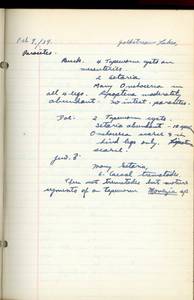 Feb 7/39. Goldstream Lakes,
Parasites.
Buck. 4 Taenium cysts on
mesenteries
2 Setaria
Many Onchocerca in
all 4 legs. Lipoptena moderately
abundant. no intest. parasites.
Doe. 2 Taenium cysts.
Setaria abundant - 10
Onchocerca scarce & in
hind legs only. Lipoptena
scarce.
Juv. ♂.
many Setaria,
2 Caecal trematode
Then not trematodes but mature
segments of a tapeworm Moniezia sp